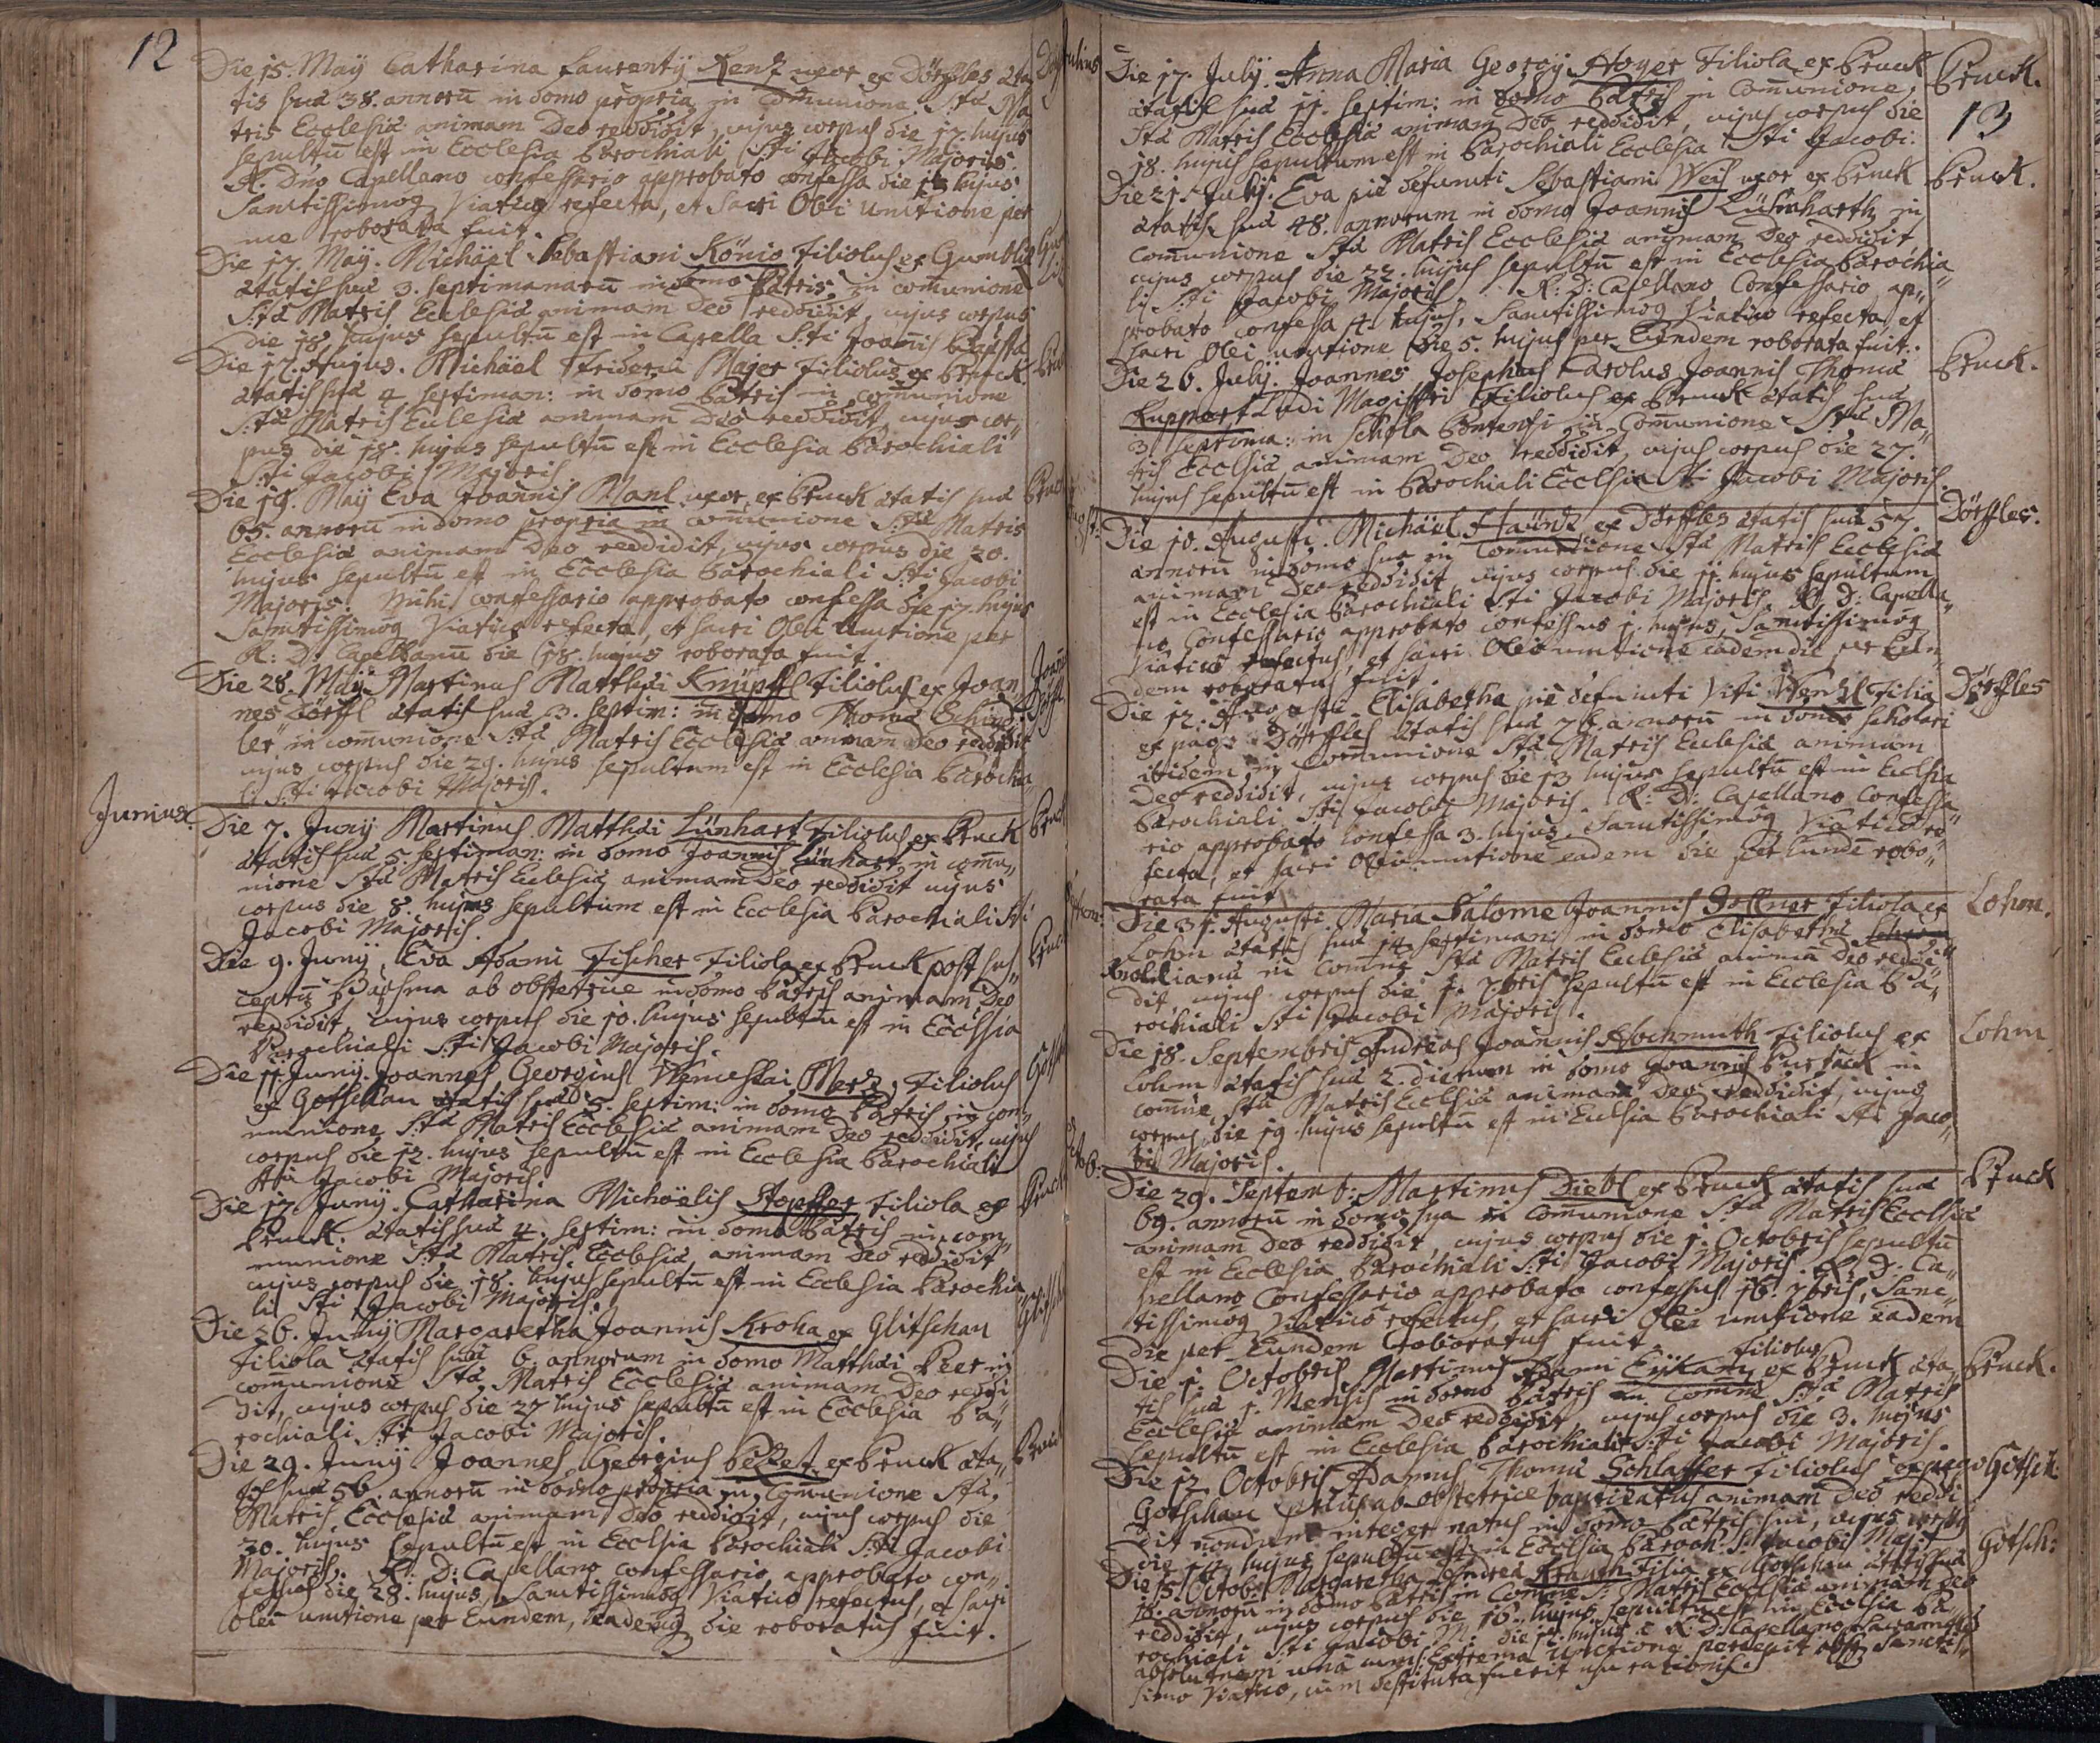 12
Die 15. Maÿ Catharina Laurentÿ Renz uxor ex Dörffles æta
tis suæ 38. annorū in domo propria in Com̄unione Stæ Ma
tris Ecclesiæ animam Deo reddidit, cujus corpus die 17. hujus
sepultū est in Ecclesia Parochiali Sti Jacobi Majoris.
R. Dno Capellano confessario approbato confessa die hujus
Sanctissimoq Viatico refecta, et Sacri Olei Unctione per
me roborata fuit.
Die 17. Maÿ. Michäel Sebastiani König Filiolus ex Gumblit
ætatis suæ 3. septimanarū in domo Patris in com̄unione
S.tæ Matris Ecclesiæ animam Deo reddidit, cujus corpus
die 18. hujus sepultū est in Capella S.ti Joan̄is Baptistæ
Die 17. Hujus. Michäel Friderici Majer Filiolus ex Bruck.
ætatis suæ 4 septiman: in domo Patris in com̄unione
S.tæ Matris Ecclesiæ animam Deo reddidit, cujus cor„
pus die 18. hujus sepultū est in Ecclesia Parochiali
S.ti Jacobi Majoris
Die 19. Maÿ Eva Joan̄is Manl uxor ex Bruck ætatis suæ
65. annorū in domo propria in com̄unione S.tæ Matris
Ecclesiæ animam Deo reddidit, cujus corpus die 20.
hujus sepultū est in Ecclesia Parochiali S.ti Jacobi
Majoris. Mihi confessario approbato confessa die 17. hujus
Sanctissimoq Viatico refecta, et sacri Olei Unctione per
R: D: Capellanū die 18. hujus roborata fuit
Die 28. Maÿ Martinus Matthæi Knüpffl Filiolus ex Joan„
nes Dörffl ætatis suæ 3. septim: in domo Thomæ Schind„
ler in com̄unione S.tæ Matris Ecclesiæ animam Deo reddidit
cujus corpus die 29. hujus sepultum est in Ecclesia Parochia„
li S.ti Jacobi Majoris.
Junius.
Die 7. Junÿ Martinus Matthæi Lünhart Filiolus ex Bruck
ætatis suæ 5. septiman: in domo Joannis Lünhart in com̄u„
nione Stæ Matris Ecclesiæ animam Deo reddidit cujus
corpus die 8. hujus sepultum est in Ecclesia Parochiali Sti
Jacobi Majoris.
Die 9. Junÿ Eva Adami Fischer Filiola ex Bruck post sus„
ceptū Baptisma ab obstetrice in domo Patris animam Deo
reddidit, cujus corpus die 10. hujus sepultū est in Ecclesia
Parochiali S.ti Jacobi Majoris.
Die 11. Junÿ. Joannes Georgius Wenceslai Merz, Filiolus
ex Gotschau ætatis suæ 5. septim: in domo Patris in com
munione S.tæ Matris Ecclesiæ animam Deo reddidit, cujus
corpus die 12. hujus sepultū est in Ecclesia Parochiali
Sti Jacobi Majoris.
Die 17. Junÿ. Catharina Michäelis Stopffer Filiola ex
Bruck. ætatis suæ 4. septim: in domo Patris in com„
munione S.tæ Matris Ecclesiæ animam Deo reddidit
cujus corpus die 18. hujus sepultū est in Ecclesia Parochia„
li Sti Jacobi Majoris.
Die 26. Junÿ Margaretha Joannis Kroha ex Glitschau
Filiola ætatis suæ 6. annorum in domo Matthæi Peer in
com̄unione Stæ Matris Ecclesiæ animam Deo reddi
dit, cujus corpus die 27 hujus sepultū est in Ecclesia Pa„
rochiali S.ti Jacobi Majoris.
Die 29. Junÿ Joannes Georgius Bezet ex Bruck æta„
tis suæ 56. annorū in domo propria in Com̄unione Stæ
Matris Ecclesiæ animam Deo reddidit, cujus corpus die
30. hujus sepultū est in Ecclsia Parochiali S.ti Jacobi
Majoris. R: D: Capellano confessario approbato con„
fessus die 28. hujus, Sanctissimoq Viatico refectus, et sacri
Olei unctione per Eundem, eademq die roboratus fuit.
Die 17. Julÿ. Anna Maria Georgÿ Hoyer Filiola ex Bruck
Bruck.
13
ætatis suæ 11. septim: in domo Patris in Com̄unione
Stæ Matris Ecclesiæ animam Deo reddidit, cujus corpus die
18. hujus sepultum est in Parochiali Ecclesia Sti Jacobi.
Die 21. Julÿ. Eva piè defuncti Sebastiani Weis uxor ex Bruck
Bruck.
ætatis suæ 48. annorum in domo Joannis Lühnharth in
Com̄unione Stæ Matris Ecclesiæ animam Deo reddidit,
cujus corpus die 22. hujus sepultū est in Ecclesia Parochia„
li S.ti Jacobi Majoris. R: D: Capellano Confessario ap„
probato confessa 4. hujus, Sanctissimoq Viatico refecta, et
sacri Olei unctione die 5. hujus per Eundem roborata fuit.
Die 26. Julÿ. Joannes Josephus Carolus Joannis Thomæ
Bruck.
Ruppert Ludi Magistri Filiolus ex Bruck ætatis suæ
3 septima: in Schola Pontensi in Com̄unione Stæ Ma„
tris Ecclsiæ animam Deo reddidit, cujus corpus die 27.
hujus sepultū est in Parochiali Ecclsia Sti Jacobi Majoris.
Die 10. Augusti. Michäel Haünz ex Dörffles ætatis suæ 57.
Dörffles.
annorū in domo sua in Com̄unione Stæ Matris Ecclesiæ
animam Deo reddidit, cujus corpus die 11. hujus sepultum
est in Ecclesia Parochiali Sti Jacobi Majoris. R: D: Capella„
no Confessario approbato confessus 1. hujus, Sanctissimoq
Viatico refectus, et sacri Olei unctione eadem die per Eun„
dem roboratus fuit.
Die 12. Auguste Elisabetha piè defuncti Viti Wenzl Filia
Dörffles
ex pago Dörffles ætatis suæ 76. annorū in domo scholari
ibidem in Com̄unione Stæ Matris Ecclesiæ animam
Deo reddidit, cujus corpus die 13 hujus sepultū est in Ecclsia
Parochiali Sti Jacobi Majoris. R: D: Capellano Confessa„
rio approbato confessa 3. hujus, Sanctissimoq Viatico re„
fecta, et sacri Olei unctione eadem die per Eundē robo„
rata fuit.
Die 31. Augusti. Maria Salome Joannis Gollner Filiola ex
Lohm.
Lohm ætatis suæ 14. septiman: in domo Elisabethæ
in Com̄une Stæ Matris Ecclesiæ animā Deo reddi„
dit, cujus corpus die 1. 7bris sepultū est in Ecclesia Pa„
rochiali Sti Jacobi Majoris.
Die 18. Septembris Andreas Joannis Hochmuth Filiolus ex
Lohm
Lohm ætatis suæ 2. dierum in domo Joannis in
com̄une Stæ Matris Ecclsiæ animam Deo reddidit, cujus
corpus die 19. hujus sepultū est in Ecclsia Parochiali Sti Jaco„
bi Majoris.
Octob:
Die 29. Septemb: Martinus Dietl ex Bruck ætatis suæ
Bruck
69. annorū in domo sua in Com̄unione Stæ Matris Ecclsiæ
animam Deo reddidit, cujus corpus die 1. Octobris sepultū
est in Ecclesia Parochiali S.ti Jacobi Majoris. R: D: Ca„
pellano Confessario approbato confessus 16. 7bris, Sanc„
tissimoq Viatico refectus, et sacri Olei unctione eadem
die per Eundem roboratus fuit.
Filiolus
Die 1. Octobris Martinus Adami ex Bruck æta„
Bruck.
tis suæ 1. Mensis in domo Patris in Com̄une Stæ Matris
Ecclesiæ animam Deo reddidit, cujus corpus die 3. hujus
sepultū est in Ecclesia Parochiali Sti Jacobi Majoris.
Die 12. Octobris Adamus Thomæ Schlaffer Filiolus ex pago
Götsch:
Gotschau prius ab obstetrice baptizatus animam Deo reddi
dit nondum integer natus in domo Patris sui, cujus corpus
die hujus sepultū est in Ecclsia Paroch: S. Jacobi Maj:
Die 15. Octobr: Margaretha Andreæ Krauth Filia ex Gotschau ætatis suæ
Gotsch:
18. annorū in domo Patris in Com̄une S. Matris Ecclsiæ animam Deo
reddidit, cujus corpus die 16. hujus sepultū est in Ecclsia Pa„
rochiali S.ti Jacobi M. die hujus à R: D: Capellano Sacramentalē
absolutionem unà cum Extrema Unctione percepit absq Sanctis„
simo Viatico, cum destituta fuerit usu rationis.